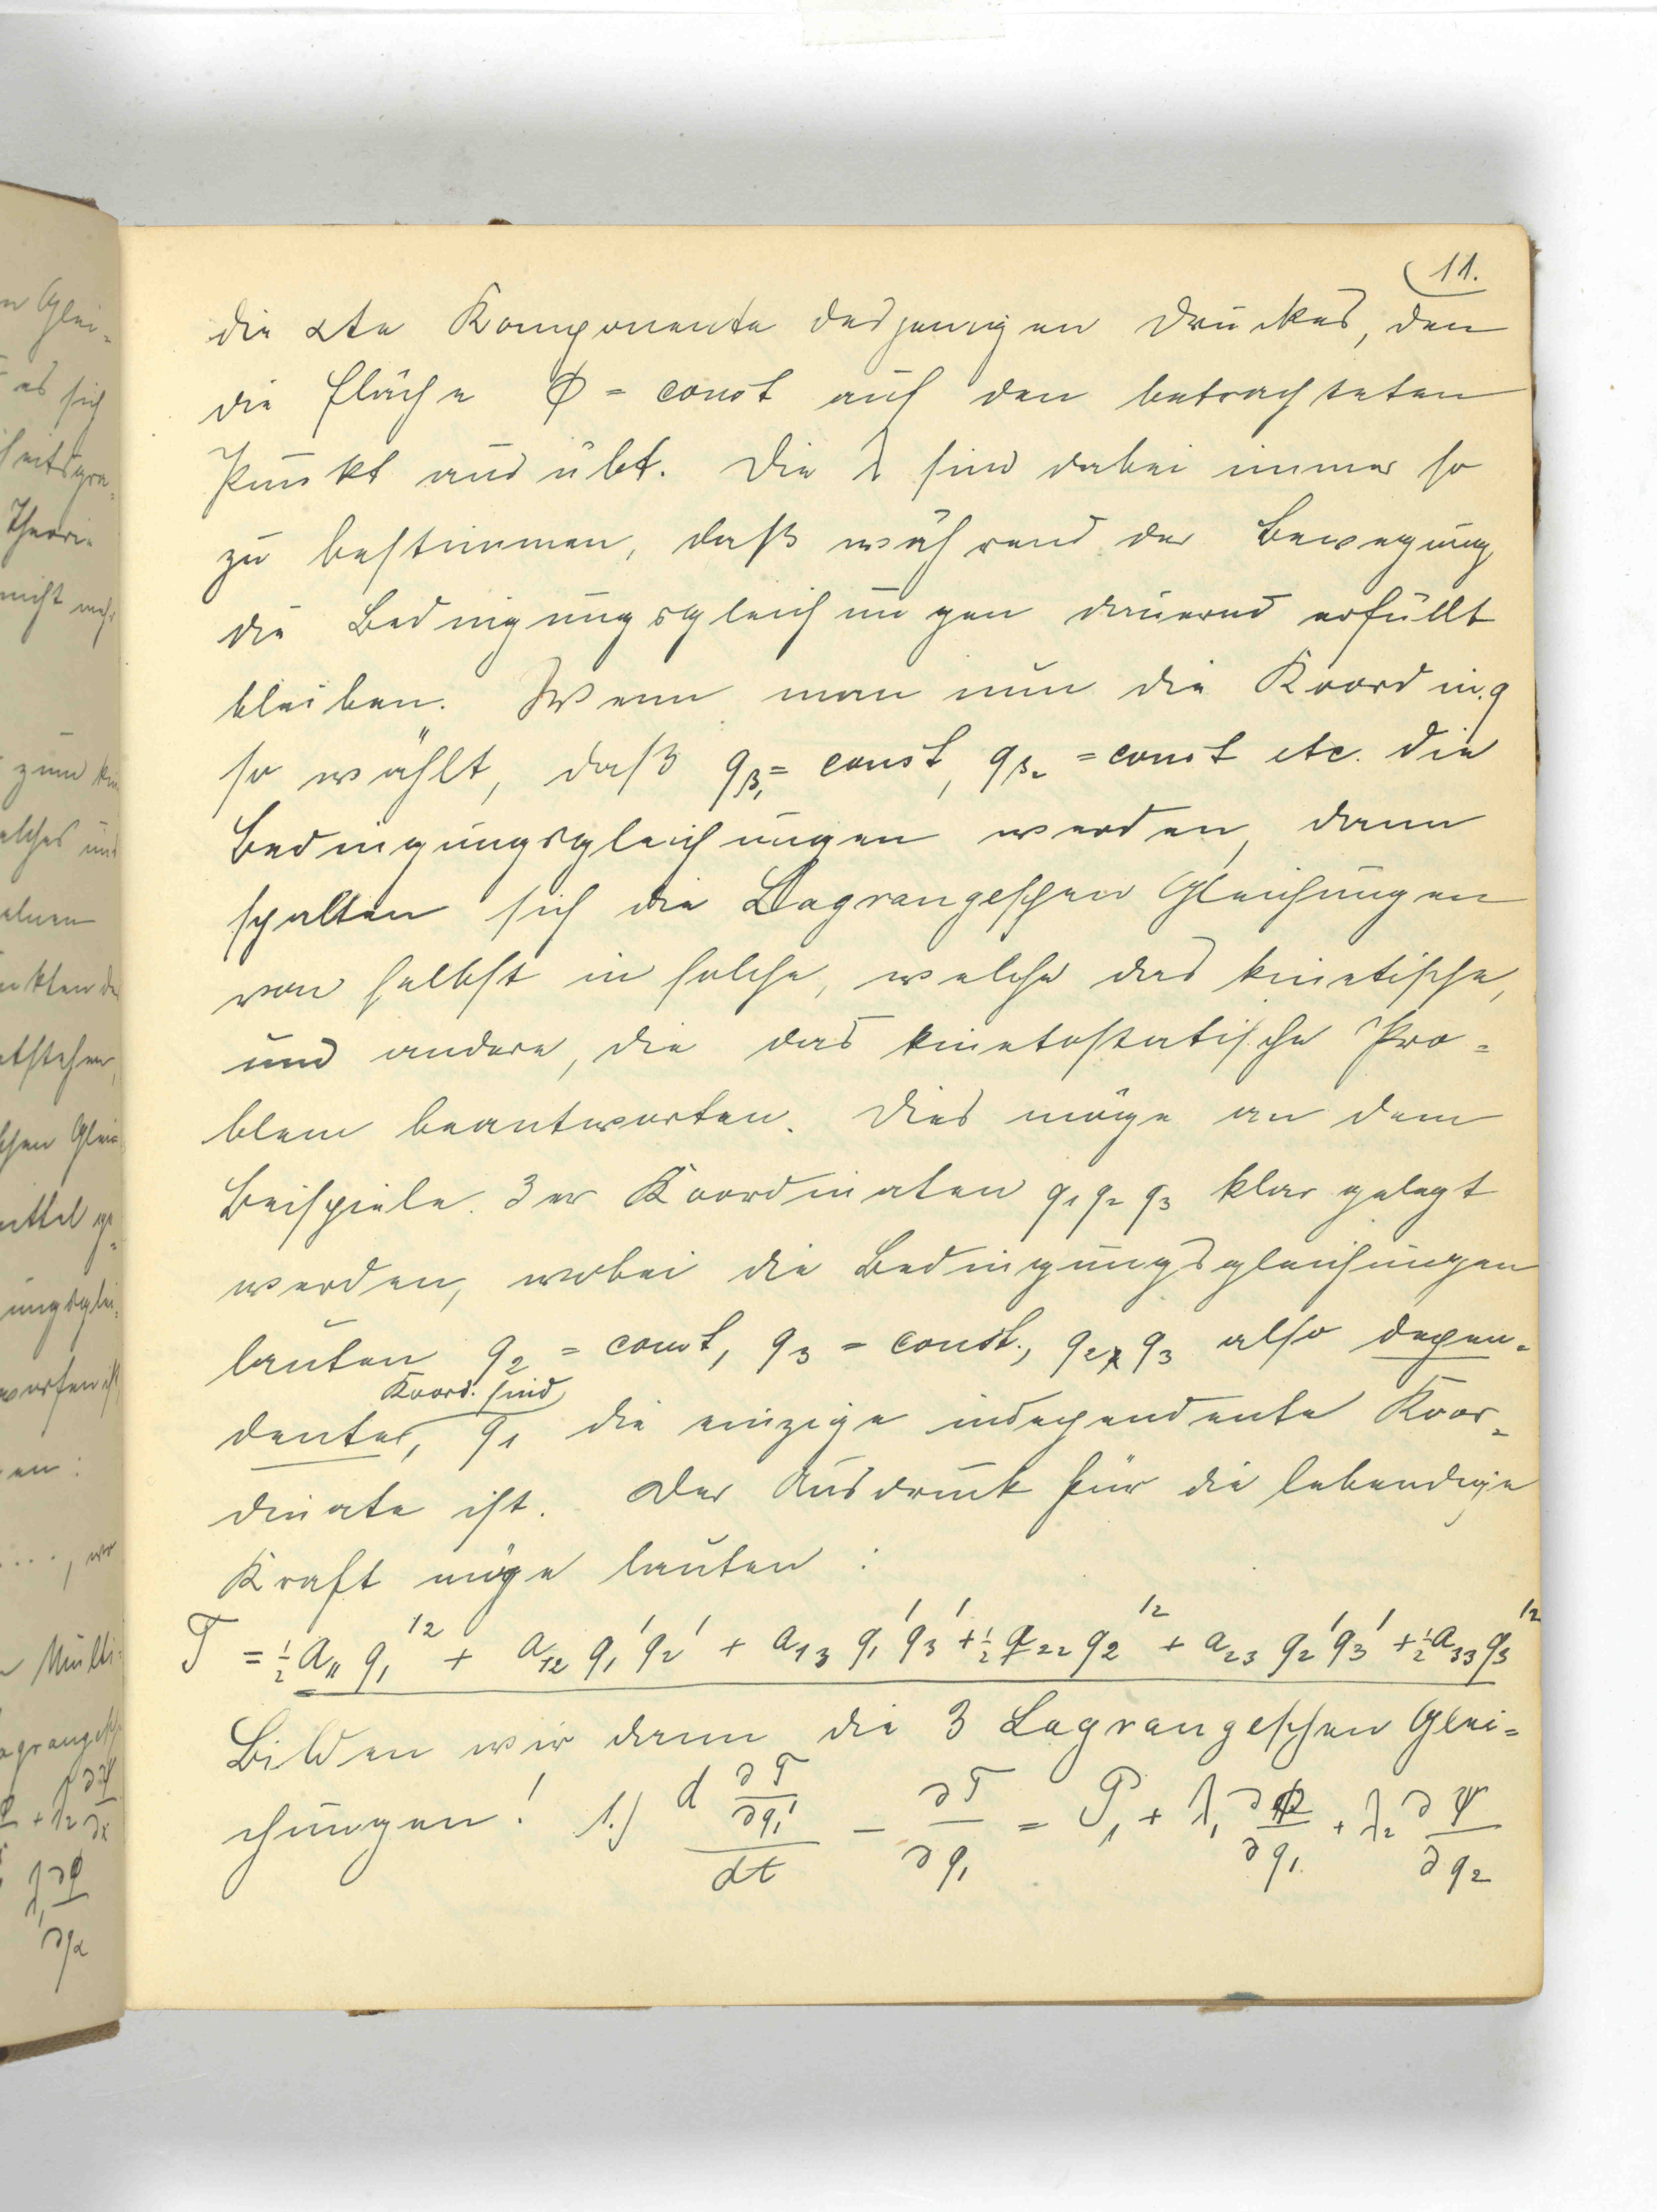 11.
die αte Komponente desjenigen Druckes, den
die Fläche Φ = const auf den betrachteten
Punkt ausübt. Die λ sind dabei immer so
zu bestimmen, daß während der Bewegung
die Bedingungsgleichungen dauernd erfüllt
bleiben. Wenn man nun die Koordin. q
so wählt, daß q_β₁ = const, q_β₂ = const etc. die
Bedingungsgleichungen werden, dann
spalten sich die Lagrangeschen Gleichungen
von selbst in solche, welche das kinetische,
und andere, die das kinetostatische Pro=
blem beantworten. Dies möge an dem
Beispiele 3er Koordinaten q₁ q₂ q₃ klar gelegt
werden, wobei die Bedingungsgleichungen
lauten q₂ = const, q₃ = const., q₂, q₃ also depen=
Koord. sind
dente, q₁ die einzige independente Koor=
dinate ist. Der Ausdruck für die lebendige
Kraft möge lauten:
T = ½ a₁₁ q₁'² + a₁₂ q₁' q₂' + a₁₃ q₁' q₃' + ½ a₂₂ q₂'² + a₂₃ q₂' q₃' + ½ a₃₃ q₃'²
Bilden wir dann die 3 Lagrangeschen Glei=
chungen! 1.) d ∂T/∂q₁' / dt − ∂T/∂q₁ = P₁ + λ₁ ∂Φ/∂q₁ + λ₂ ∂Ψ/∂q₂